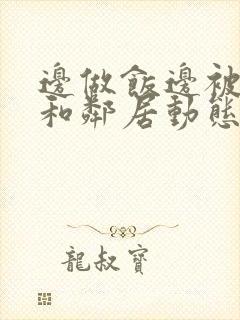 邊做飯邊被
和鄰居動態
龍叔寶